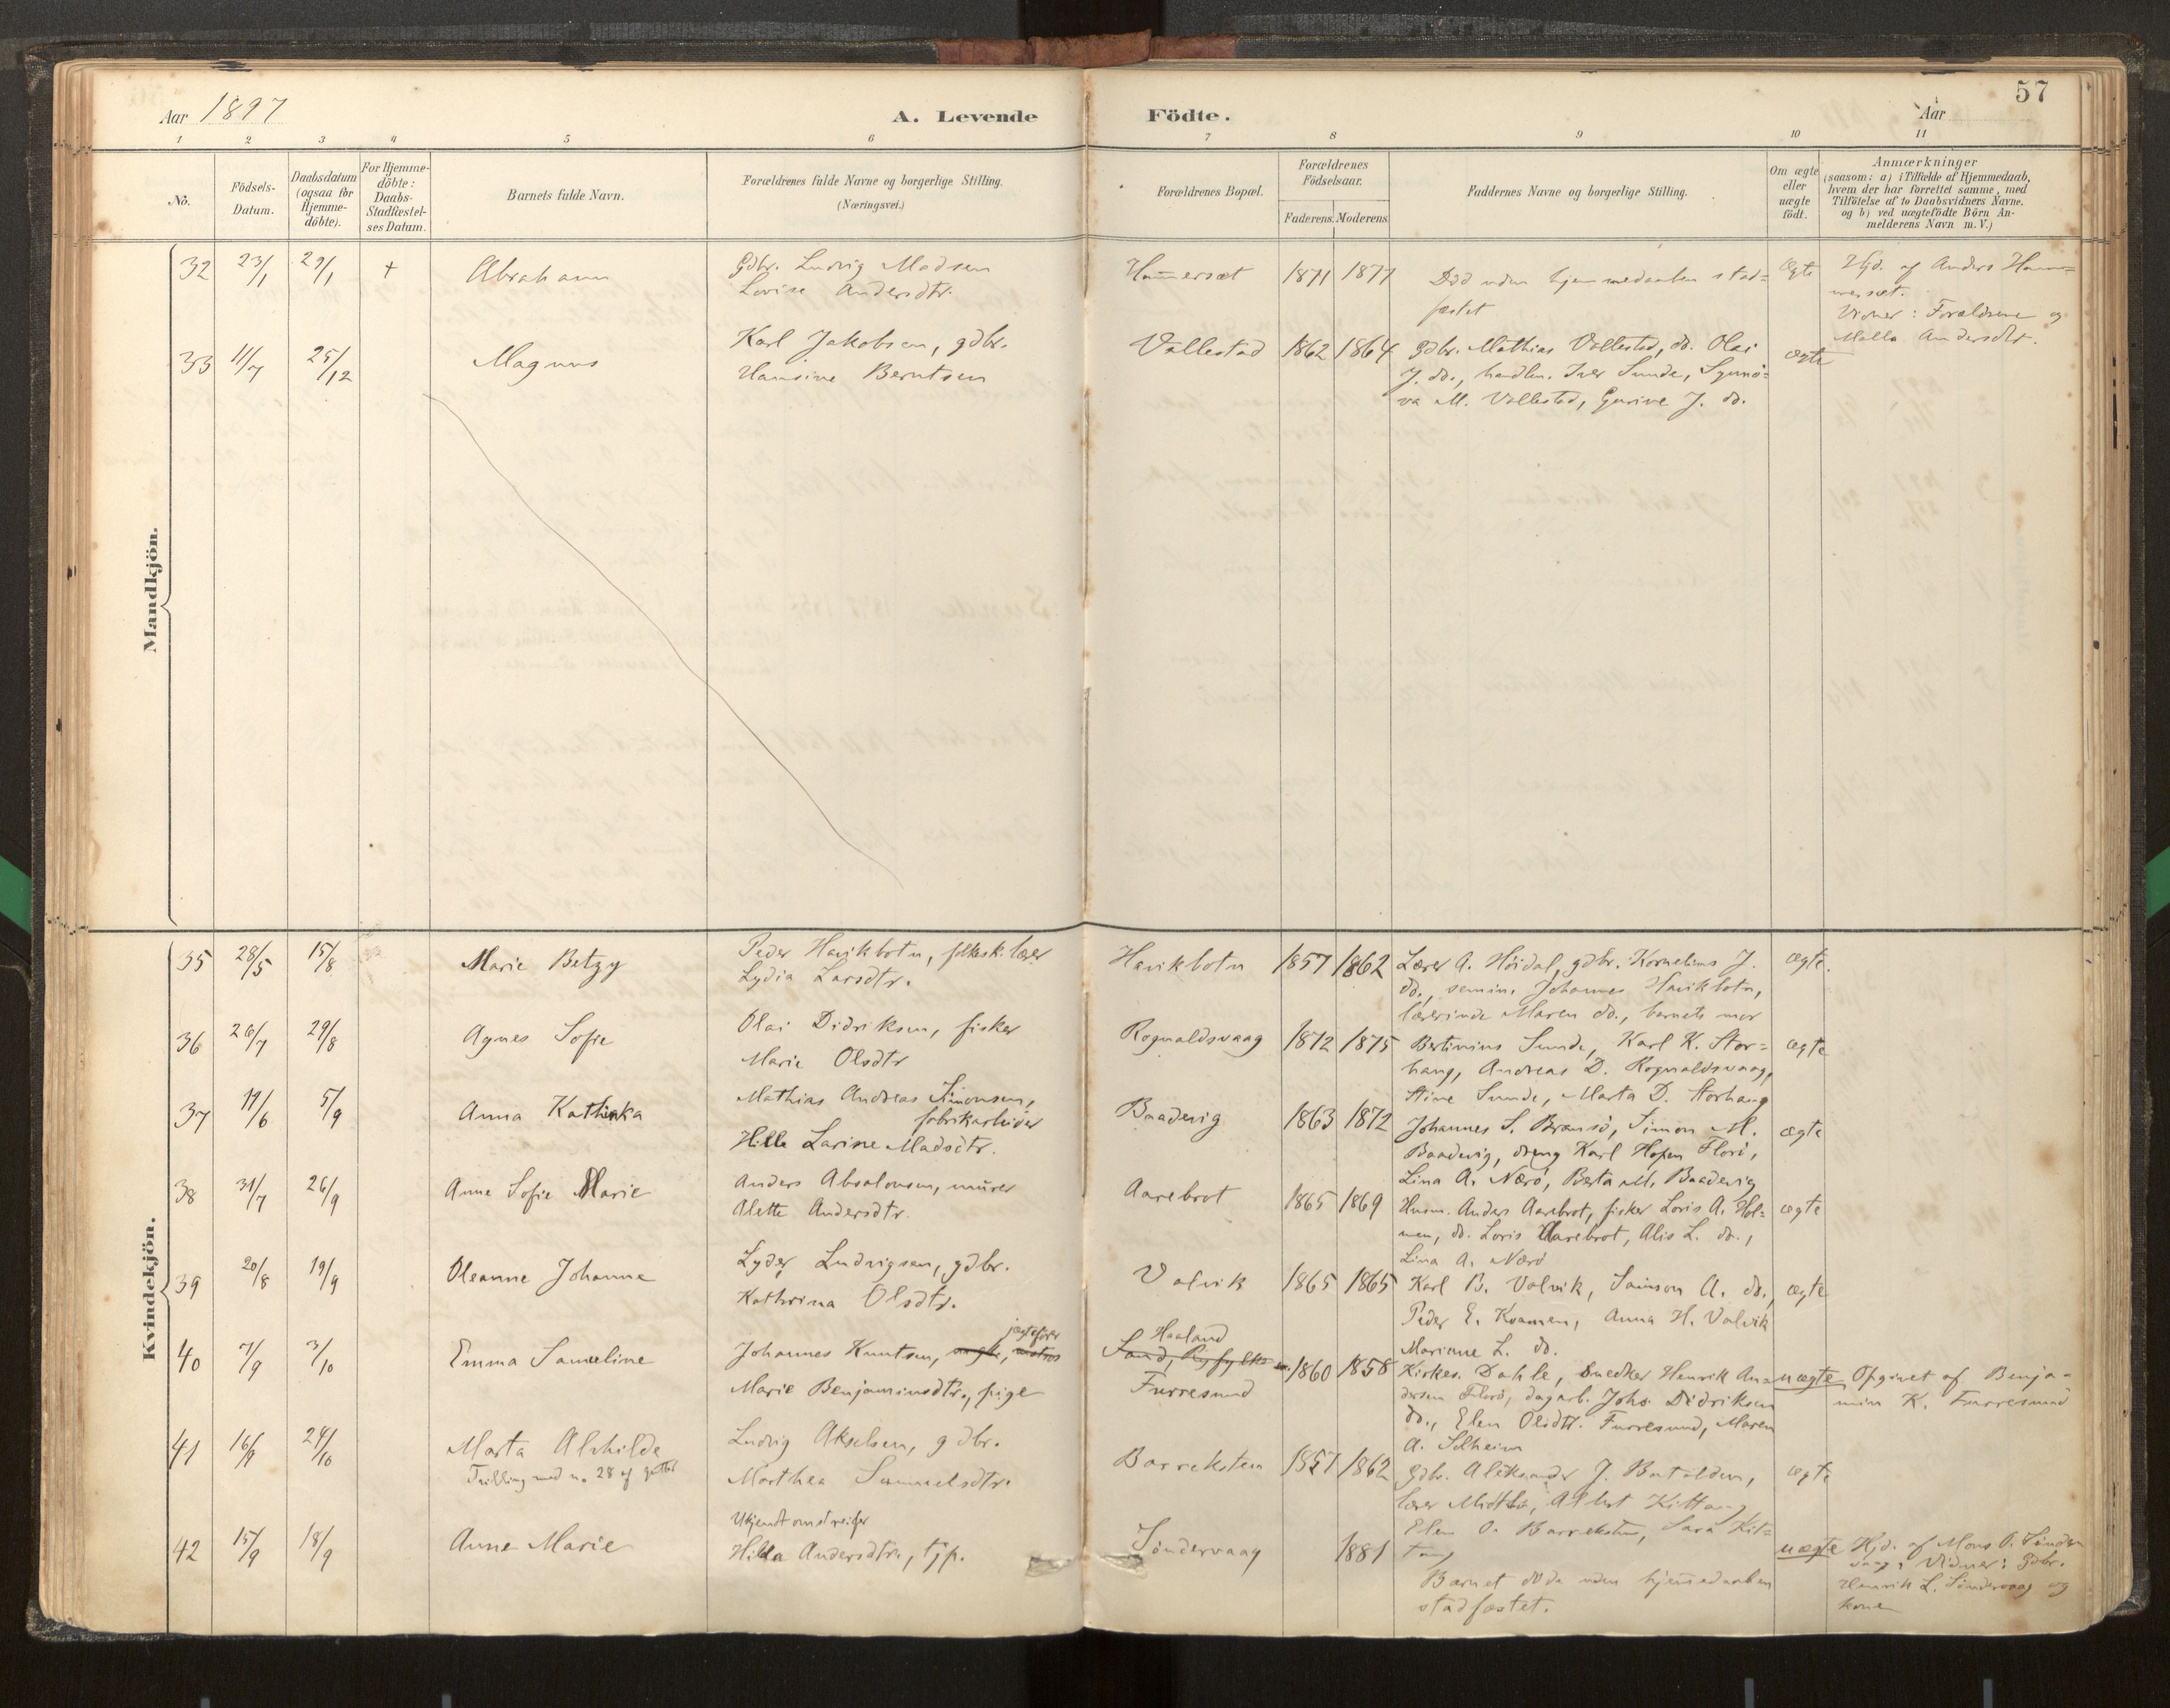 57
Aar 1897
A. Levende Födte.
Aar
1 2 3 4 5 6 7 8 9 10 11
No.
Födsels-Datum.
Daabsdatum (ogsaa for Hjemme-döbte).
For Hjemme-döbte: Daabs-Stadfæstel-ses Datum.
Barnets fulde Navn.
Forældrenes fulde Navne og borgerlige Stilling.
(Næringsvei.)
Forældrenes Bopæl.
Forældrenes Födselsaar.
Faderens. Moderens.
Faddernes Navne og borgerlige Stilling.
Om ægte eller uægte födt.
Anmærkninger
(saasom: a) i Tilfælde af Hjemmedaab,
hvem der har forrettet samme, med
Tilföielse af to Daabsvidners Navne.
og b) ved uægtefödte Börn An-
melderens Navn m.V.)
Mandkjön.
32 23/1 29/1 + Abraham
Gdbr. Ludvig Madsen
Lovise Andersdtr.
Ham̄ersæt 1871 1877
Död uden hjemmedaaben stad=
fæstet
ægte
Hjd. af Anders Ham=
mersæt.
Vidner: Forældrene og
Andersdtr.
33 11/7 25/12 Magnus
Karl Jakobsen, gdbr.
Hansine Berntsen
Vallestad 1862 1864
Gdbr. Mathias Vallestad, do. Olai
J. do., handlm. Iver Sunde, Synnö=
va M. Vallestad, Gurine J. do.
ægte
Kvindekjön.
35 28/5 15/8 Marie Betzy
Peder Havikbotn, folkesk. lærer
Lydia Larsdtr.
Havikbotn 1857 1862
Lærer A. Höidal, gdbr. Kornelius J.
do., semin. Johannes Havikbotn,
lærerinde Maren do., barnets mor
ægte.
36 26/7 29/8 Agnes Sofie
Olai Didriksen, fisker
Marie Olsdtr
Rognaldsvaag 1872 1875
Bertinius Sunde, Karl K. Stor=
haug, Andreas D. Rognaldsvaag,
Stine Sunde, Marta D. Storhaug
ægte
37 11/6 5/9 Anna Kathinka
Mathias Andreas Simonsen,
fabrikarbeider
Hilla Larine Madsdtr.
Baadevig 1863 1872
Johannes S. Bransö, Simon M.
Baadevig, dreng Karl Hopen Florö,
Lina A. Nærö, Berta M. Baadevig
ægte
38 31/7 26/9 Anne Sofie Marie
Anders Absalonsen, murer
Alette Andersdtr.
Aarebrot 1865 1869
Husm. Anders Aarebrot, fisker Loris A. Hol=
men, do. Loris Aarebrot, Alis L. do.,
Lina A. Nærö
ægte
39 20/8 19/9 Oleanne Johanne
Lyder Ludvigsen, gdbr.
Kathrina Olsdtr.
Valvik 1865 1865
Karl B. Valvik, Samson A. do.,
Peder E. Kvamen, Anna H. Valvik
Marianne L. do.
ægte
40 7/9 3/10 Emma Samueline
jægtefører
Johannes Knutsen, ungk., matros
Marie Benjaminsdtr., pige
Haaland
Sand, Ryfylke
Furresund
1860 1858
Kirkes. Dahle, snedker Henrik An=
dersen Florö, dagarb. Johs. Didriksen
do., Elen Olsdtr. Furresund, Maren
A. Solheim
uægte
Opgivet af Benja-
min K. Furresund
41 16/9 24/10 Marta Alvhilde
Tvilling med n. 28 af gutter
Ludvig Akselsen, gdbr.
Marthea Samuelsdtr.
Barreksten 1857 1862
Gdbr. Aleksander J. Batalden,
lærer Midtbö, Albert Kittang,
Elen O. Barreksten, Sara Kit=
tang
ægte
42 15/9 18/9 Anne Marie
Ukjendt omstreifer
Hilda Andersdtr., tjp.
Söndervaag 1881
Barnet döde uden hjem̄edaaben
stadfæstet.
uægte
Hjd. af Mons O. Sönder
vaag; Vidner: Gdbr.
Henrik L. Söndervaag og
kone